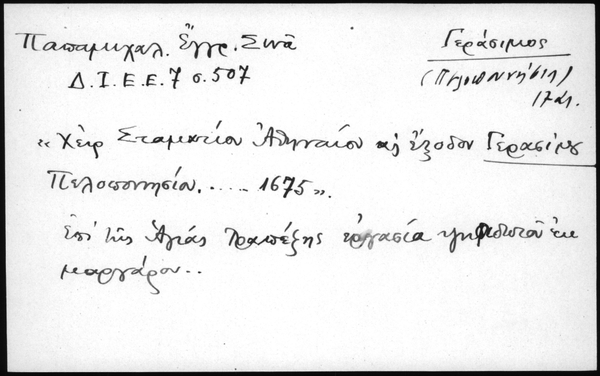 Παπαμιχαλ. Ἔγγρ. Σινᾶ
Δ.Ι.Ε.Ε. 7 σ. 507
Γεράσιμος
(Πελοποννήσιος)
17 αι.
«Χεὶρ Σταματίου Ἀθηναίου καὶ ἔξοδον Γερασίμου
Πελοποννησίου. .... 1675».
Ἐπὶ τῆς Ἁγίας Τραπέζης ἐργασία ψηφιδωτοῦ ἐκ
μαργάρου..